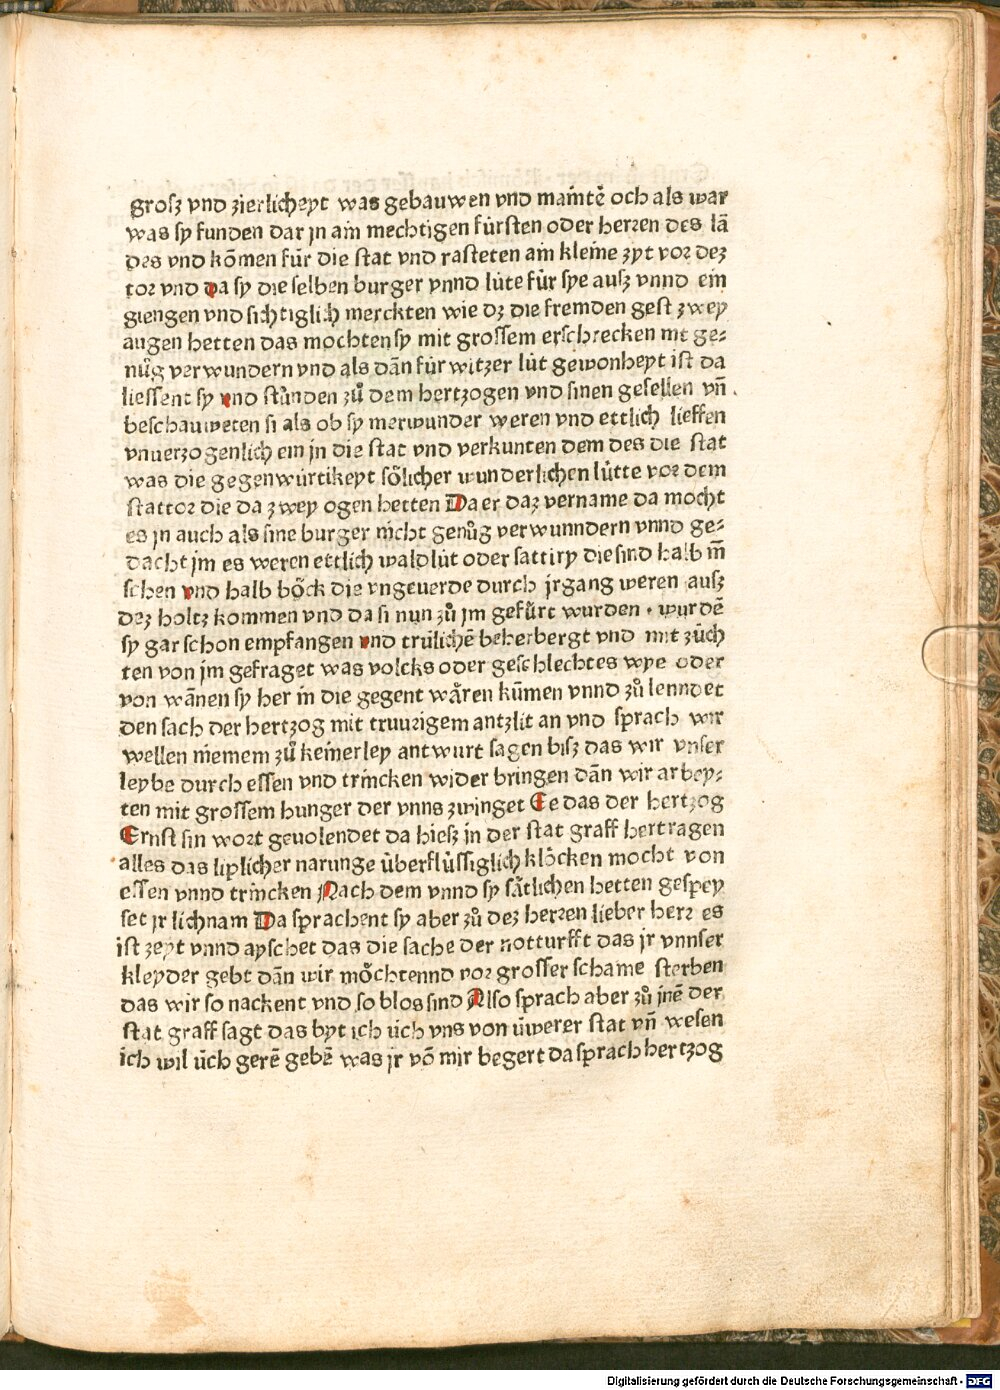 grosz vnd zierlicheyt was gebauwen vnd maı̄tē och als war
was sy funden dar jn aim mechtigen fürsten oder herren des lā
des vnd kōmen für die stat vnd rasteten aim kleine zyt vor dez
tor vnd da sy die selben burger vnnd lüte für sye ausz vnnd ein
giengen vnd sichtiglich merckten wie dz die fremden gest zwey
augen hetten das mochten sy mit grossem erschrecken nit ge⸗
nůg verwundern vnd als dān für witzer lüt gewonheyt ist da
liessent sy vnd stůnden zů dem hertzogen vnd sinen gesellen vn̄
beschauweten si als ob sy merwunder weren vnd ettlich lieffen
vnuerzogenlich ein in die stat vnd verkunten dem des die stat
was die gegenwürtikeyt sölicher wunderlichen lütte vor dem
stattor die da zwey ogen hetten Da er daz vername da mocht
es jn auch als sine burger nicht genůg verwunndern vnnd ge⸗
dacht jm es weren ettlich waldlüt oder sattiry die sind halb m̄
schen vnd halb böck die vngeuerde durch jrgang weren ausz
dez holtz kommen vnd da si nun zů jm gefürt wurden · wurdē
sy gar schon empfangen vnd trülichē beherbergt vnd mit züch
ten von jm gefraget was volcks oder geschlechtes wye oder
von wānen sy her in die gegent wären kūmen vnnd zů lenndet
den sach der hertzog mit truurigem antzlit an vnd sprach wir
wellen niemem zů keinerley antwurt sagen bisz das wir vnser
leybe durch essen vnd trincken wider bringen dān wir arbey⸗
ten mit grossem hunger der vnns zwinget Ee das der hertzog
Ernst sin wort geuolendet da hiesz in der stat graff hertragen
alles das liplicher narunge überflüssiglich klöcken mocht von
essen vnnd trincken Nach dem vnnd sy sätlichen hetten gespey
set jr lichnam Da sprachent sy aber zů dez herren lieber herr es
ist zeyt vnnd ayschet das die sache der notturfft das jr vnnser
kleyder gebt dān wir möchtennd vor grosser schame sterben
das wir so nackent vnd so blos sind Also sprach aber zů jnē der
stat graff sagt das byt ich üch vns von üwerer stat vn̄ wesen
ich wil üch gerē gebē was jr vō mir begert da sprach hertzog
Digitalisierung gefördert durch die Deutsche Forschungsgemeinschaft - DFG